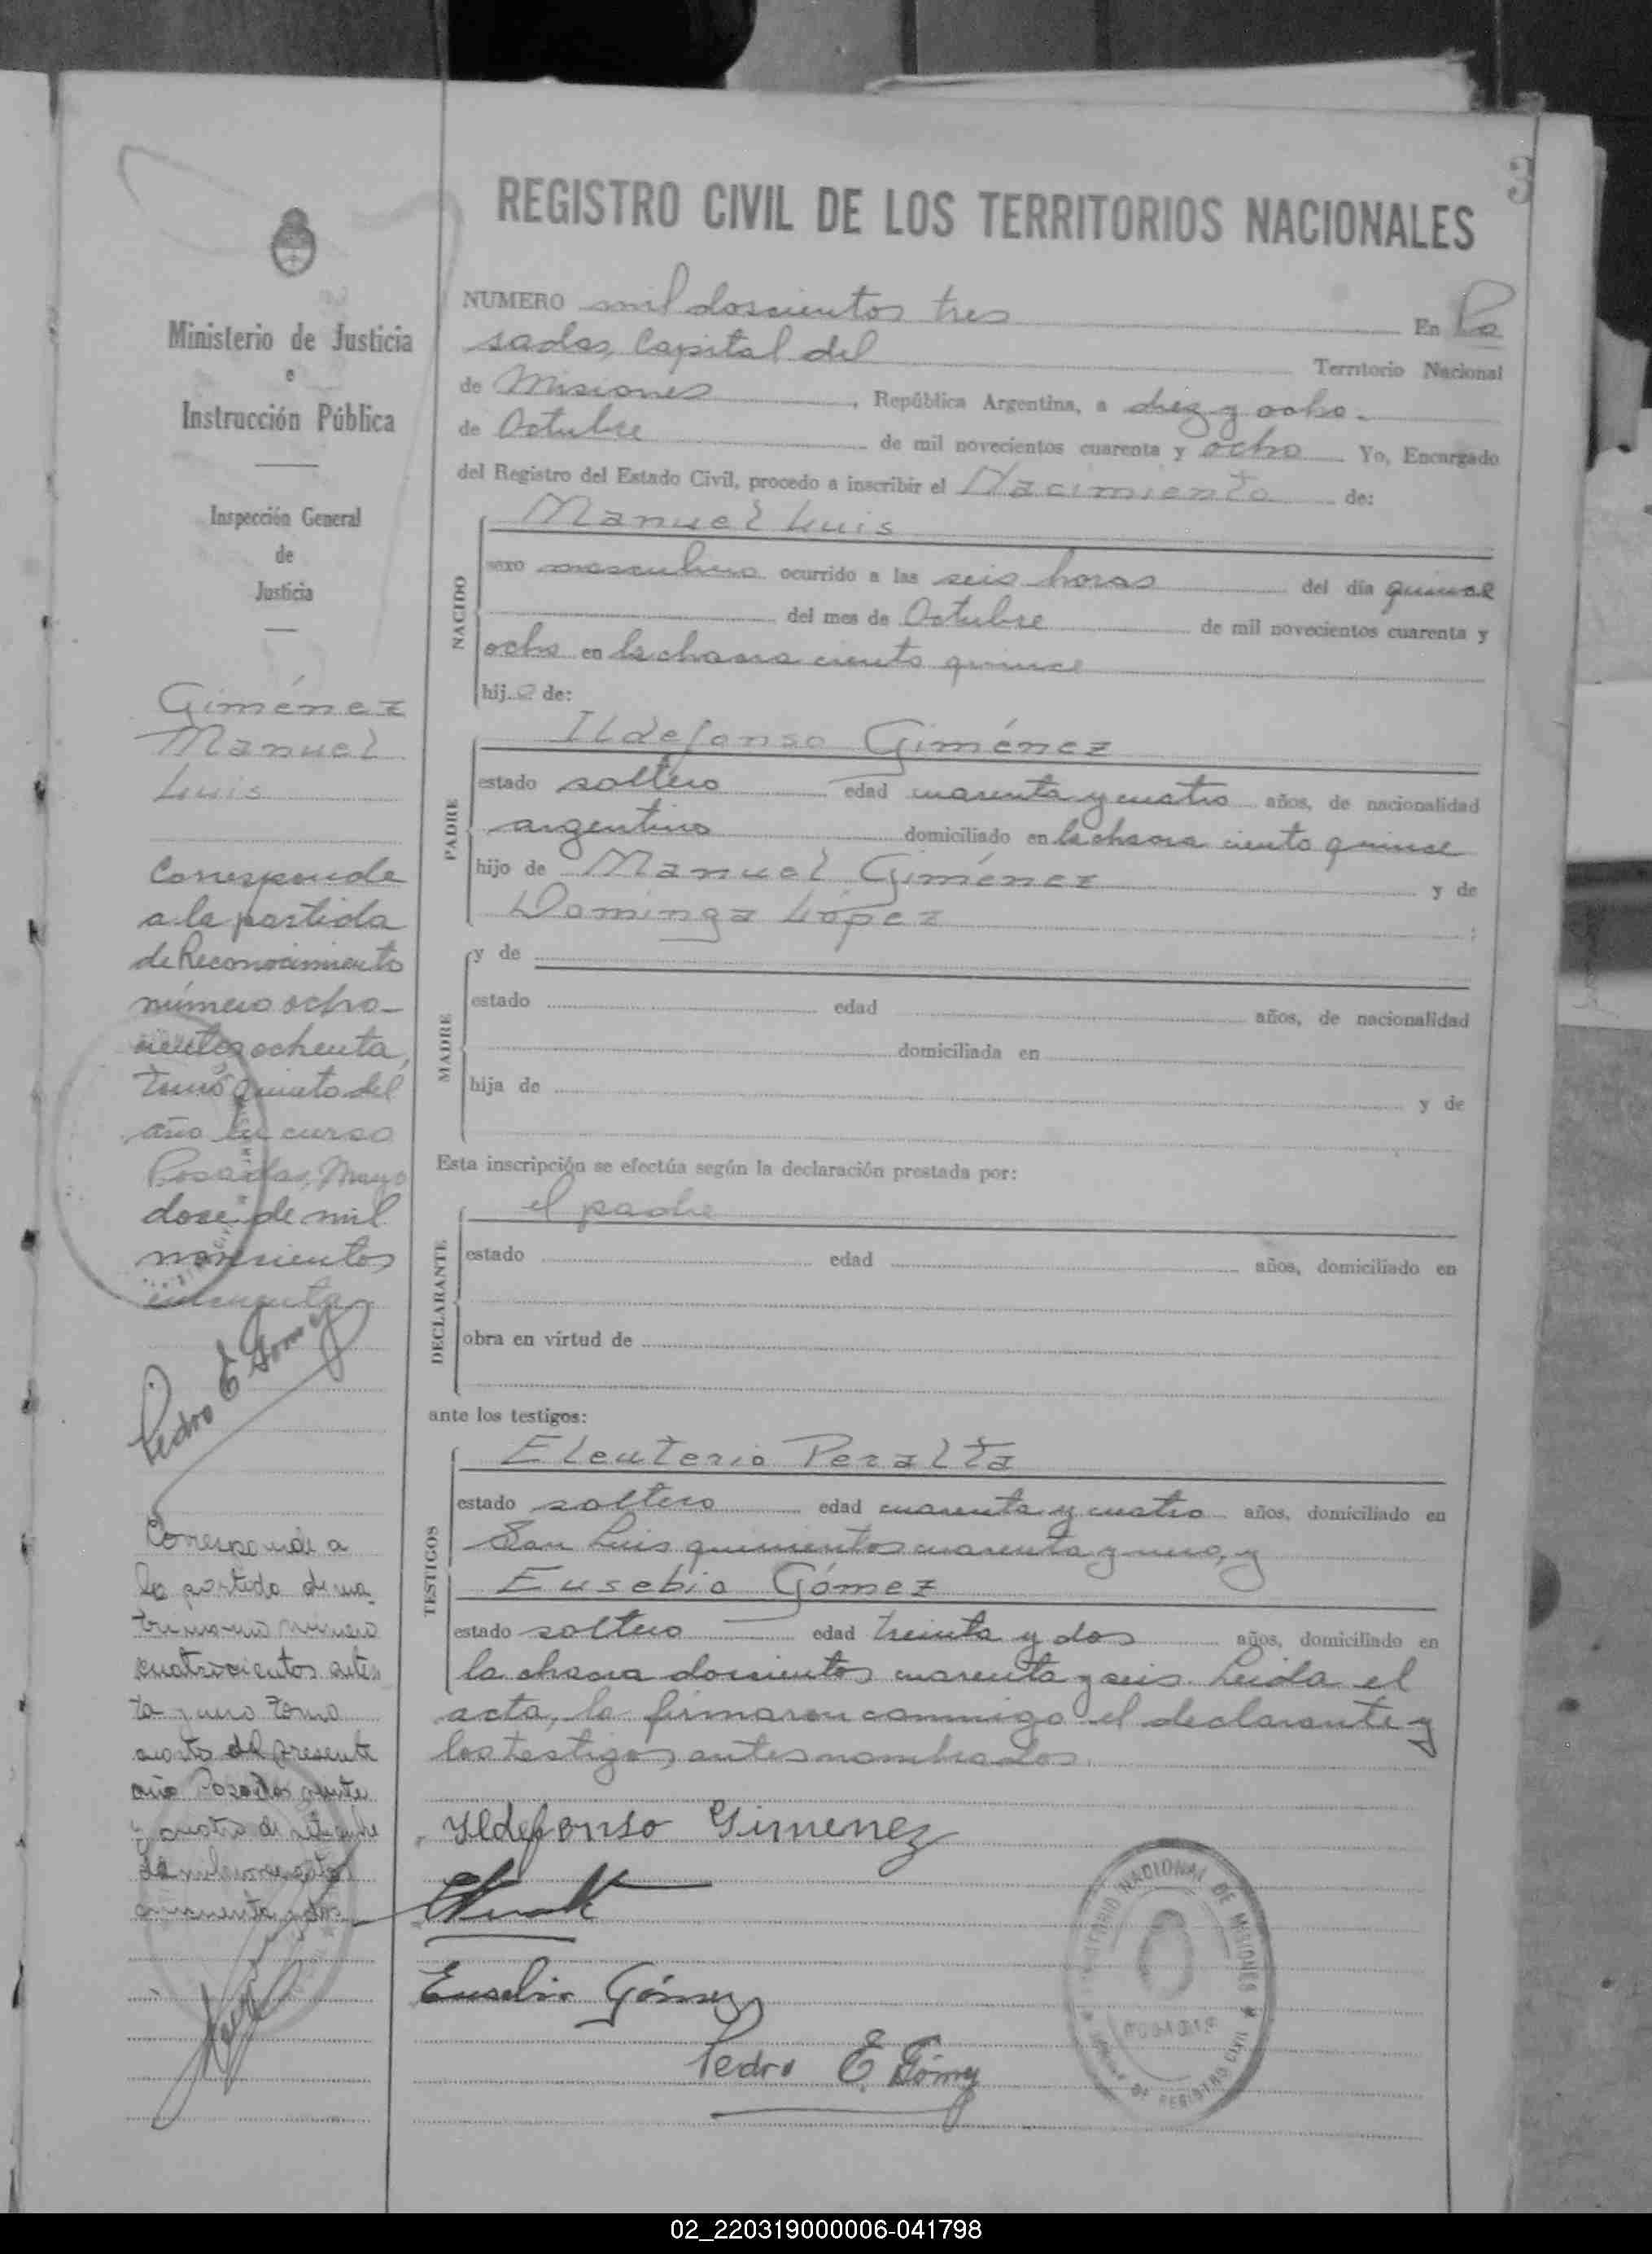 3
REGISTRO CIVIL DE LOS TERRITORIOS NACIONALES
Ministerio de Justicia
e
Instrucción Pública
Inspección General
de
Justicia
Giménez
Manuel
Luis
Corresponde
a la partida
de Reconocimiento
número ocho-
cientos ochenta,
tomo quinto del
año en curso
Posadas, Mayo
doce de mil
novecientos
cincuenta
Pedro E Gómez
Corresponde a
la partida de ma
trimonio número
cuatrocientos seten
ta y uno tomo
cuarto del presente
año Posadas veinte
y cuatro de setiembre
de mil novecientos
cincuenta y dos
NUMERO mil doscientos tres En Po
sadas, Capital del Territorio Nacional
de Misiones, República Argentina, a diez y ocho
de Octubre de mil novecientos cuarenta y ocho Yo, Encargado
del Registro del Estado Civil, procedo a inscribir el Nacimiento de:
NACIDO
Manuel Luis
sexo masculino ocurrido a las seis horas del día quince
del mes de Octubre de mil novecientos cuarenta y
ocho en la chacra ciento quince
hijo de:
PADRE
Ildefonso Giménez
estado soltero edad cuarenta y cuatro años, de nacionalidad
argentino domiciliado en la chacra ciento quince
hijo de Manuel Giménez y de
Dominga López ;
MADRE
y de
estado edad años, de nacionalidad
domiciliada en
hija de y de
Esta inscripción se efectúa según la declaración prestada por:
DECLARANTE
el padre
estado edad años, domiciliado en
obra en virtud de
ante los testigos:
TESTIGOS
Eleuterio Peralta
estado soltero edad cuarenta y cuatro años, domiciliado en
San Luis quinientos cuarenta y uno, y
Eusebio Gómez
estado soltero edad treinta y dos años, domiciliado en
la chacra doscientos cuarenta y seis. Leida el
acta, la firmaron conmigo el declarante y
los testigos antes nombrados.
Yldefonso Gimenez
Eusebio Gómez
Pedro E Gómez
TERRITORIO NACIONAL DE MISIONES
POSADAS
DE REGISTRO CIVIL
02_220319000006-041798